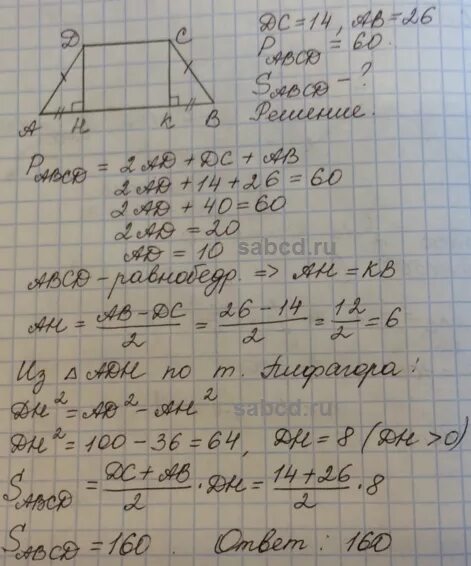 DC = 14, AB = 26
P_ABCD = 60
S_ABCD - ?
Решение.
D C
A H K B
P_ABCD = 2AD + DC + AB
2AD + 14 + 26 = 60
2AD + 40 = 60
2AD = 20
AD = 10
sabcd.ru
ABCD - равнобедр. => AH = KB
AH = (AB - DC)/2 = (26 - 14)/2 = 12/2 = 6
Из △ ADH по т. Пифагора:
DH² = AD² - AH²
sabcd.ru
DH² = 100 - 36 = 64, DH = 8 (DH > 0)
S_ABCD = (DC + AB)/2 · DH = (14 + 26)/2 · 8
S_ABCD = 160. Ответ: 160